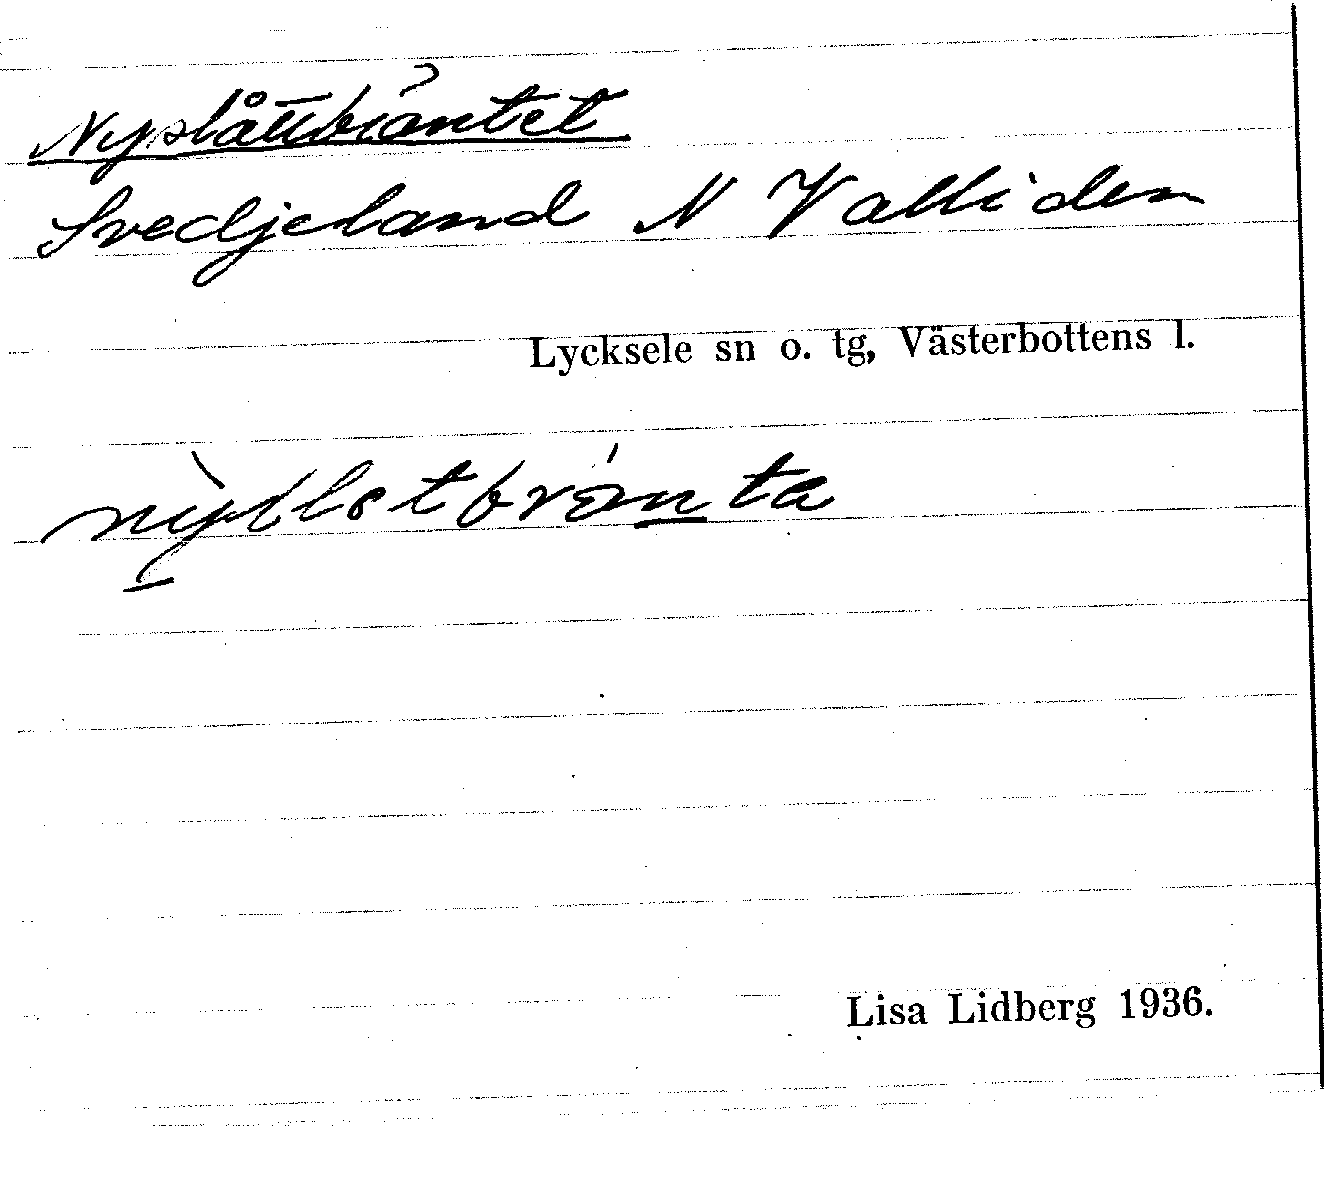 Nyslåttbrántet
Svedjeland N Valliden
Lycksele sn o. tg, Västerbottens l.
Lisa Lidberg 1936.